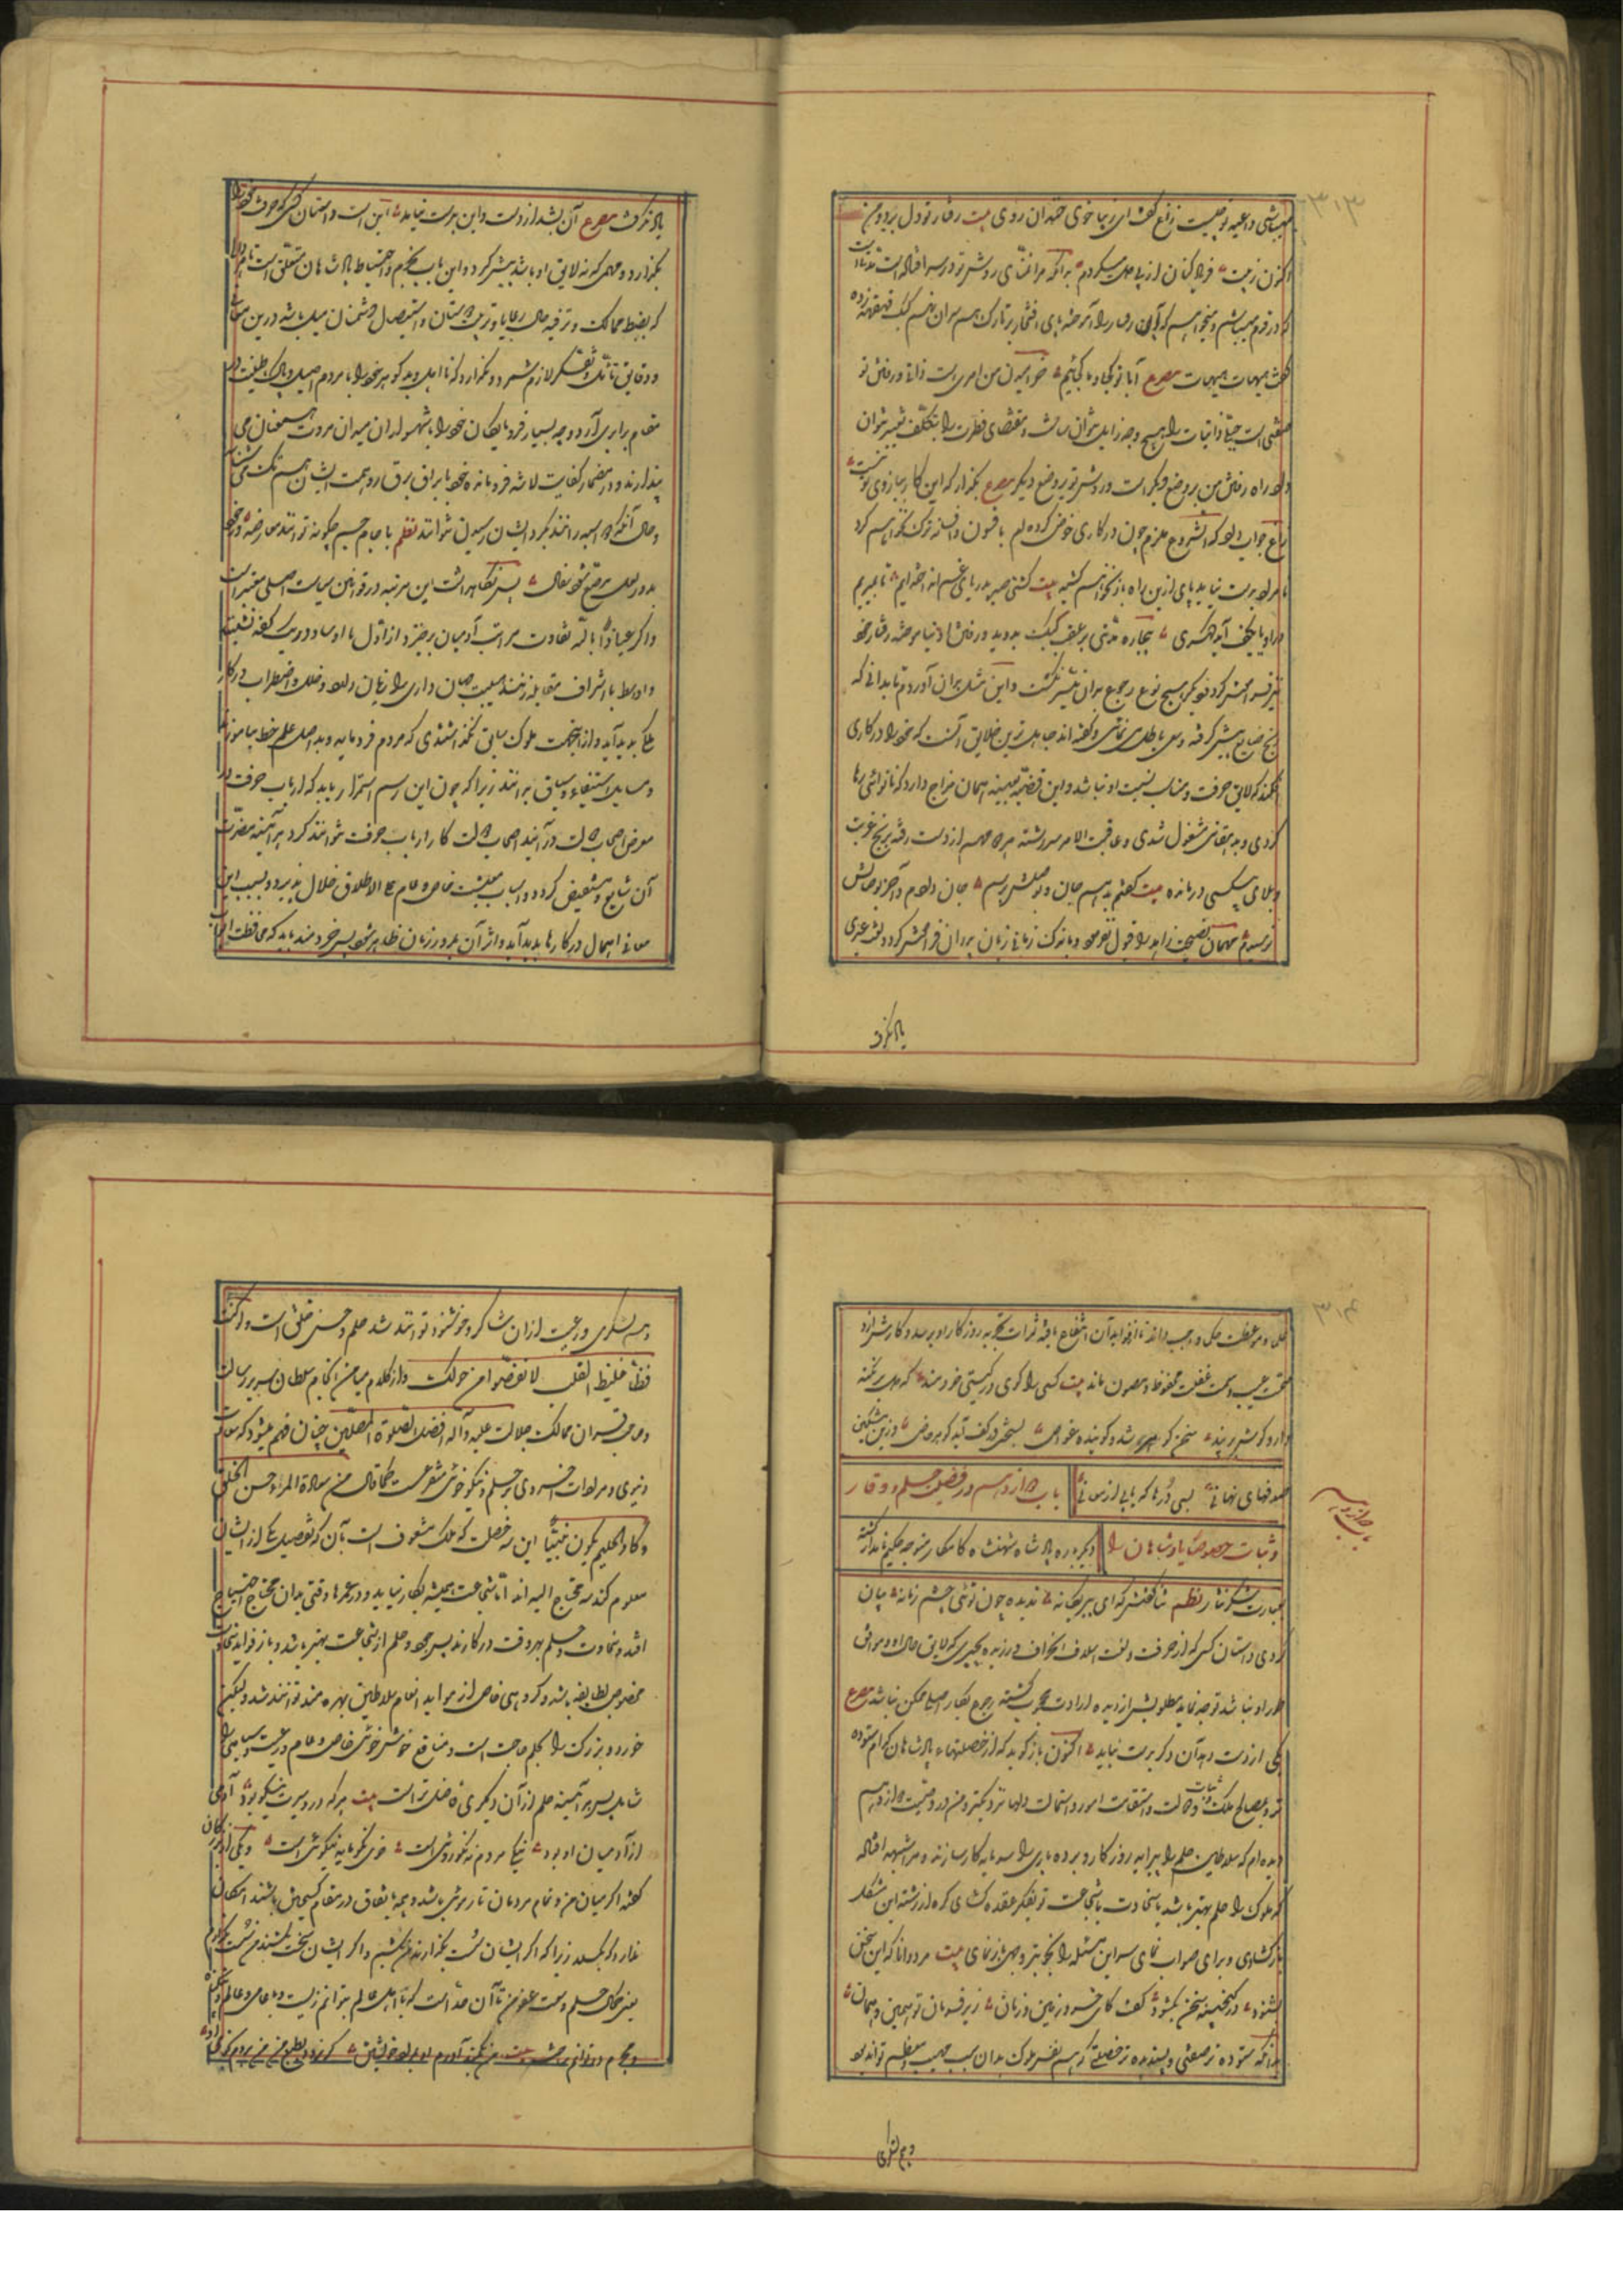 ۳۱۳
میباشی و داعیه تو چیست زاغ گفت ای زیبا خوی خندان روی بیت رفتار تو دل برد و من
اکنون ز پیت فریاد کنان از پی دل میگردم بدانکه مرا تمنای روش تو در سر افتاده است
که در قدم میباشم و میخواهم که آن رفتار را آموخته پای افتخار بر تارک همسران نهم کبک قهقهه زده
گفت هیهات هیهات مصرع آیا تو کجا و ما کجائیم خرامیدن من امری است ذاتی و رفتن تو
صفتی است جبلی ذاتیات را بهیچ وجه زایل نتوان ساخت و مقتضای فطرت را بتکلف تغییر نتوان
داد راه رفتن من بر وضع دیگر است و روش تو بر وضع دیگر مصرع بگذار که این کار ببازوی تو نیست
زاغ جواب داد که الشروع ملزم چون در کاری خوض کرده ام بافسون و افسانه ترک نخواهم کرد
تا مراد بدست نیاید پای ازین راه باز نخواهم کشید بیت کشتی صبر بدریای غم انداخته ایم تا بمیریم
درو یا بکف آید گهری بیچاره مدتی بر عقب کبک بدوید و رفتن او نیاموخته رفتار خود
نیز فراموش کرد و دیگر بهیچ نوع رجوع بدان میسر نگشت و این مثل بدان آوردم تا بدانی که
رنج ضایع پیش گرفته و سعی باطل می نمائی و گفته اند جاهل ترین خلایق آنست که خود را در کاری
افکند که لایق حرفت و مناسب نسبت او نباشد و این قضیه بعینه همان مزاج دارد که نانوائی رها
کردی و بدهقانی مشغول شدی و عاقبت الامر سررشته هر دو مهم از دست رفته برنج غربت
و بلای بیکسی درمانده بیت گفتم بدهم جان و بوصلش برسم جان دادم و آخر بوصالش
نرسیدم مهمان نصیحت زاهد را قبول ننمود و باندک زمانی زبان پدران فراموش کرد و لغت عبری
یاد نگرفت
یاد نگرفت مصرع آن بشد از دست و این بدست نیامد این است داستان کسی که حرفت خود را
بگذارد و مهمی که نه لایق او باشد پیش گیرد و این باب بحزم و احتیاط پادشاهان متعلق است
که بضبط ممالک و ترفیه حال رعایا و تربیت دوستان و استیصال دشمنان میل باشد درین معانی
و دقایق تأمل و تفکر لازم شمرد و نگذارد که نااهل و بدگوهر خود را با مردم اصیل و پاک طینت در
مقام برابری آرد و چه بسیار فرومایگان خود را با شهسواران میدان مروت همعنان می
پندارند و در مضمار کفایت لاشه فرومانده خود با براق برق رو همت ایشان هم تک می شناسند
و حال آنکه اگر اسپه رانند بگرد ایشان رسیدن نتوانند نظم با جام جم چگونه تواند معارضه
بد و رسد بوضع خود سفال پس نگاهداشت این مرتبه در قوانین سیاست اصلی معتبر است
و اگر عیاذا بالله تفاوت مراتب آدمیان برخیزد و اراذل با اوساط در یک کفه نشینند
و اوساط با اشراف مقابله زنند هیبت جهان داری را زیان دارد و خلل و اضطراب در کار
ملک پدید آید و از اینجهت ملوک سابق نگذاشتندی که مردم فرومایه و بد اصل علم خط بیاموزند
و مسایل استیفاء و سیاق بدانند زیرا که چون این رسم استمرار یابد که ارباب حرفت در
معرض اصحاب دولت درآیند و اصحاب دولت کار ارباب حرفت نتوانند کرد هر آئینه مضرت
آن شایع و مستفیض گردد و اسباب معیشت خاص و عام علی الاطلاق خلل پذیرد و بسبب این
معانی اهمال در کارها پدید آید و اثر آن بمرور زمان ظاهر شود پس خردمند باید که محافظت
۳۱۴
و موعظت ملوک واجب داند تا از فواید آن انتفاع یافته ثمرات تجربه روزگار او برسد و کارش از
محنت عیب و سمت غفلت محفوظ و مصون ماند بیت کسی را گوی در گیتی خردمند که دل بر نکته
دارد گوش بر پند سخن گوهر شد و گوینده غواص بسختی در کف آید گوهر خاص و زین مشکین
صدفهای نهانی بسی درها که یابی از معانی
باب دوازدهم در فضیلت حلم و وقار
و ثبات خصوصا پادشاهان را
دیگر باره پادشاه شهنشاه کامکار متوجه حکیم نامدار گشته
بعبارت شکر نثار نظم ثنا گفتش که ای پیر یگانه ندیده چون توئی چشم زمانه بیان
کردی داستان کسی که از حرفت و لغت اسلاف انحراف ورزیده بچیزی که لایق حال او و موافق
طور او نباشد توجه نماید مطلوبش از دیده ارادت محجوب گشته رجوع بکار اصلی ممکن نباشد مصرع
یکی از دست بداد و آن دگر بدست نیامد اکنون باز گوید که از خصلتهای پادشاهان کدام ستوده
تر و بمصالح ملک و ثبات دولت و استقامت امور و استمالت دلها نزدیکتر و من در وصیت دوازدهم
دیده ام که سلاطین حلم را پیرایه روزگار و بردباری را سرمایه کار سازند و مرا شبهه افتاده
که ملوک را حلم بهتر باشد یا سخاوت یا شجاعت تو بفکر عقده گشای گره از رشته این مشکل
باز گشادی و برای صواب نمای سر این مسئله را بخوبتر وجهی باز نمای بیت مرد دانا که این سخن
بشنود در گنجینه سخن بگشود گفت کای خسرو زمین و زمان زیر فرمان تو همین و همان
بدانکه ستوده تر صفتی و پسندیده تر خصلتی که هم نفس ملوک بدان سبب مهیب و معظم تواند بود
و هم لشکری
و هم لشکری و رعیت از آن شاکر و خوشنود توانند شد حلم و حسن خلق است و لو کنت
فظا غلیظ القلب لانفضوا من حولک و از کلام میامن انجام سلطان سریر رسالت
و صاحبقران ممالک جلالت علیه و آله افضل الصلوة المصلین چنان فهم میشود که سعادت
دنیوی و مرادات اخروی بر حلم و نیکو خوئی متفرع است کما قال من سعادة المرء حسن الخلق
و کاد الحلیم یکون نبیا این سه خصلت که ملک متعوف است بآن که تفصیل یکی از ایشان
معلوم کند سه محتاج الیه اند اما شجاعت همیشه بکار نیاید و در عمرها وقتی بدان محتاج احتیاج
افتد و سخاوت و حلم بهر وقت در کارند پس جود و حلم از شجاعت بهتر باشد و باز فواید سخاوت
مخصوص بطایفه باشد و گروهی خاص از مواید انعام سلاطین بهره مند توانند شد و لیکن
خورد و بزرگ را بحلم حاجت است و منافع خوشخوئی خاص و عام و رعیت و سپاهی را
شامل پس هر آئینه حلم از آن دیگری فاضلتر است بیت هر که در و سیرت نیکو بود آدمی
از آدمیان او بود نیک مردم نه نکو روئی است خوی نکو مایه نیکوئی است و یکی از بزرگان
گفته اگر میان من و تمام مردمان تار موئی باشد و همه باتفاق در مقام گسیختن باشند امکان
ندارد که بگسلد زیرا که اگر ایشان سست بگذارند من کشم و اگر ایشان سخت بکشند من سست گذارم
یعنی کمال حلم و سعت عفو من تا آن حد است که با اهل عالم بتوانم زیست و با عامی و عالم